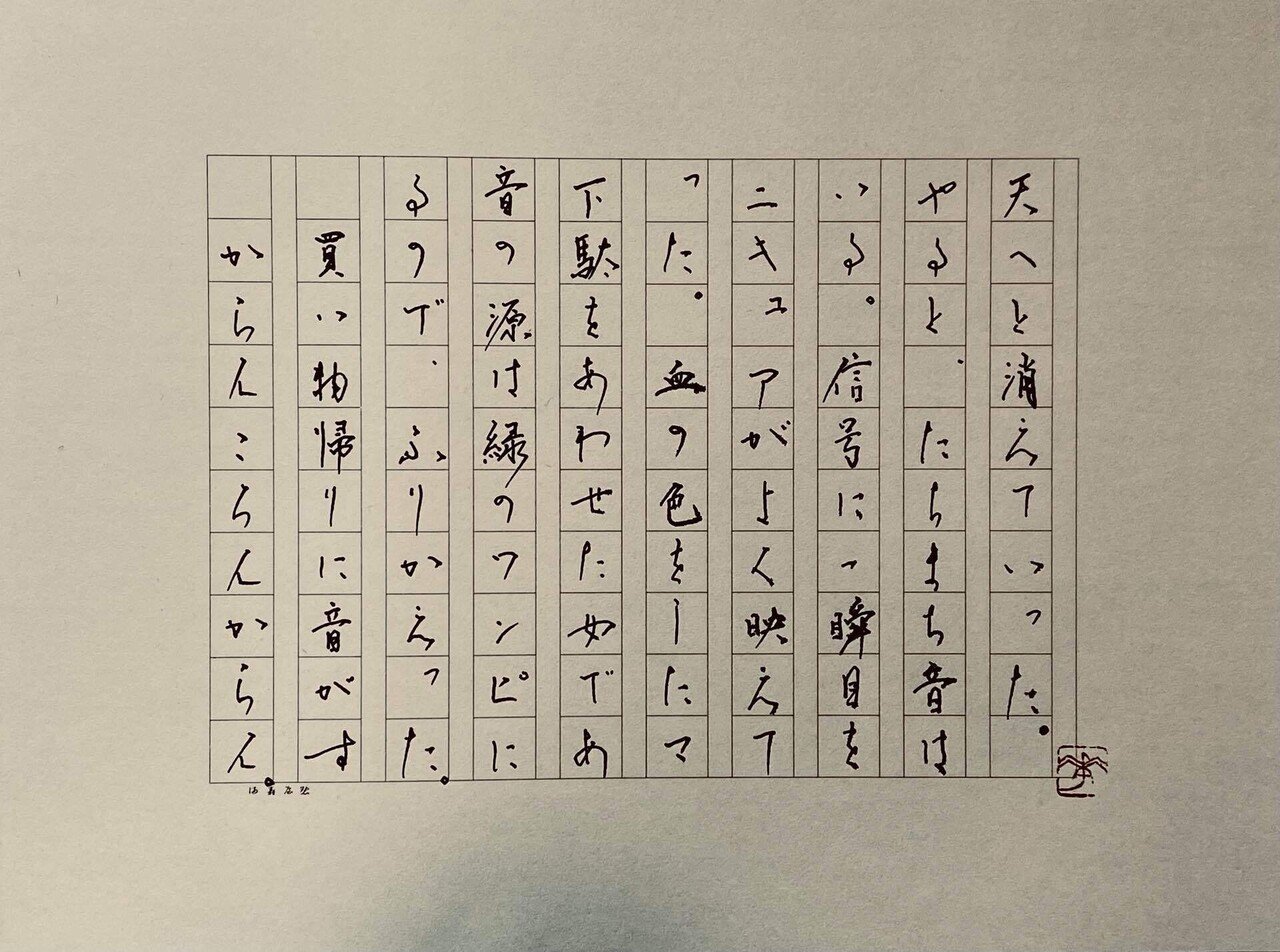 からんこらんからん。
買い物帰りに音がす
るので、ふりかえった。
音の源は緑のワンピに
下駄をあわせた女であ
った。血の色をしたマ
ニキュアがよく映えて
いる。信号に一瞬目を
やると、たちまち音は
天へと消えていった。